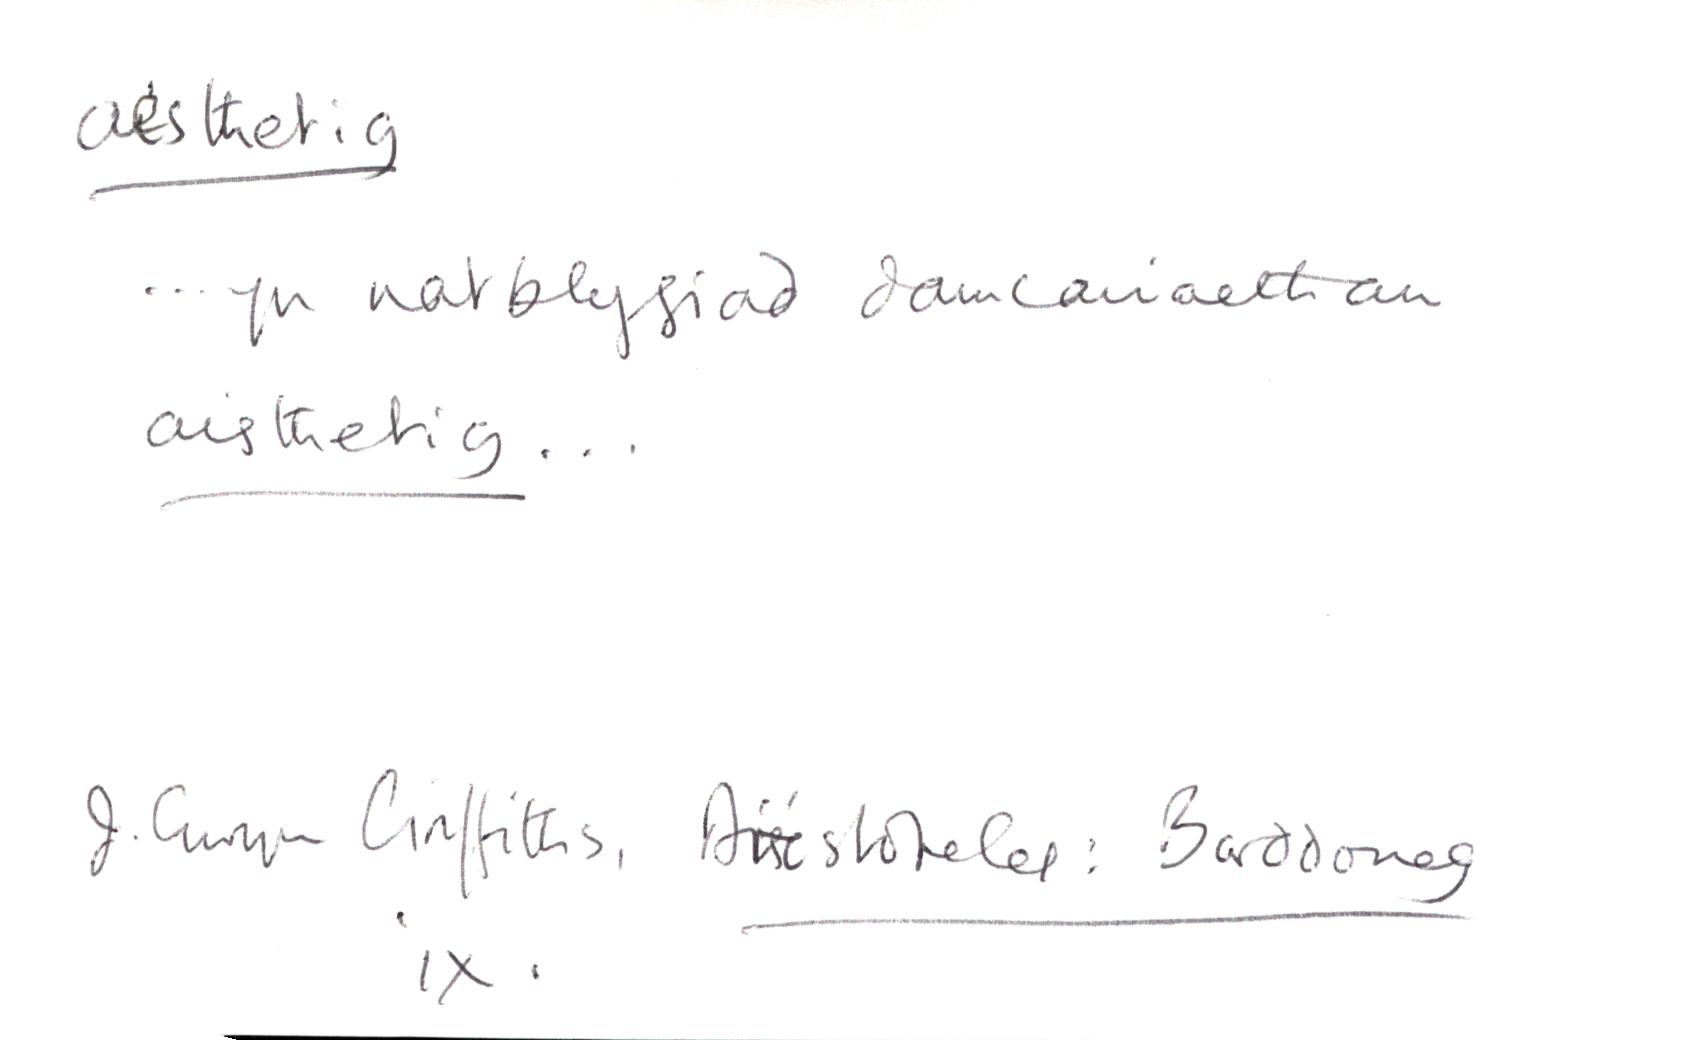 aesthetig
...yn natblygiad damcaniaethau
aisthetig...
J. Gwyn Griffiths, Aristoteles: Barddoneg
ix.